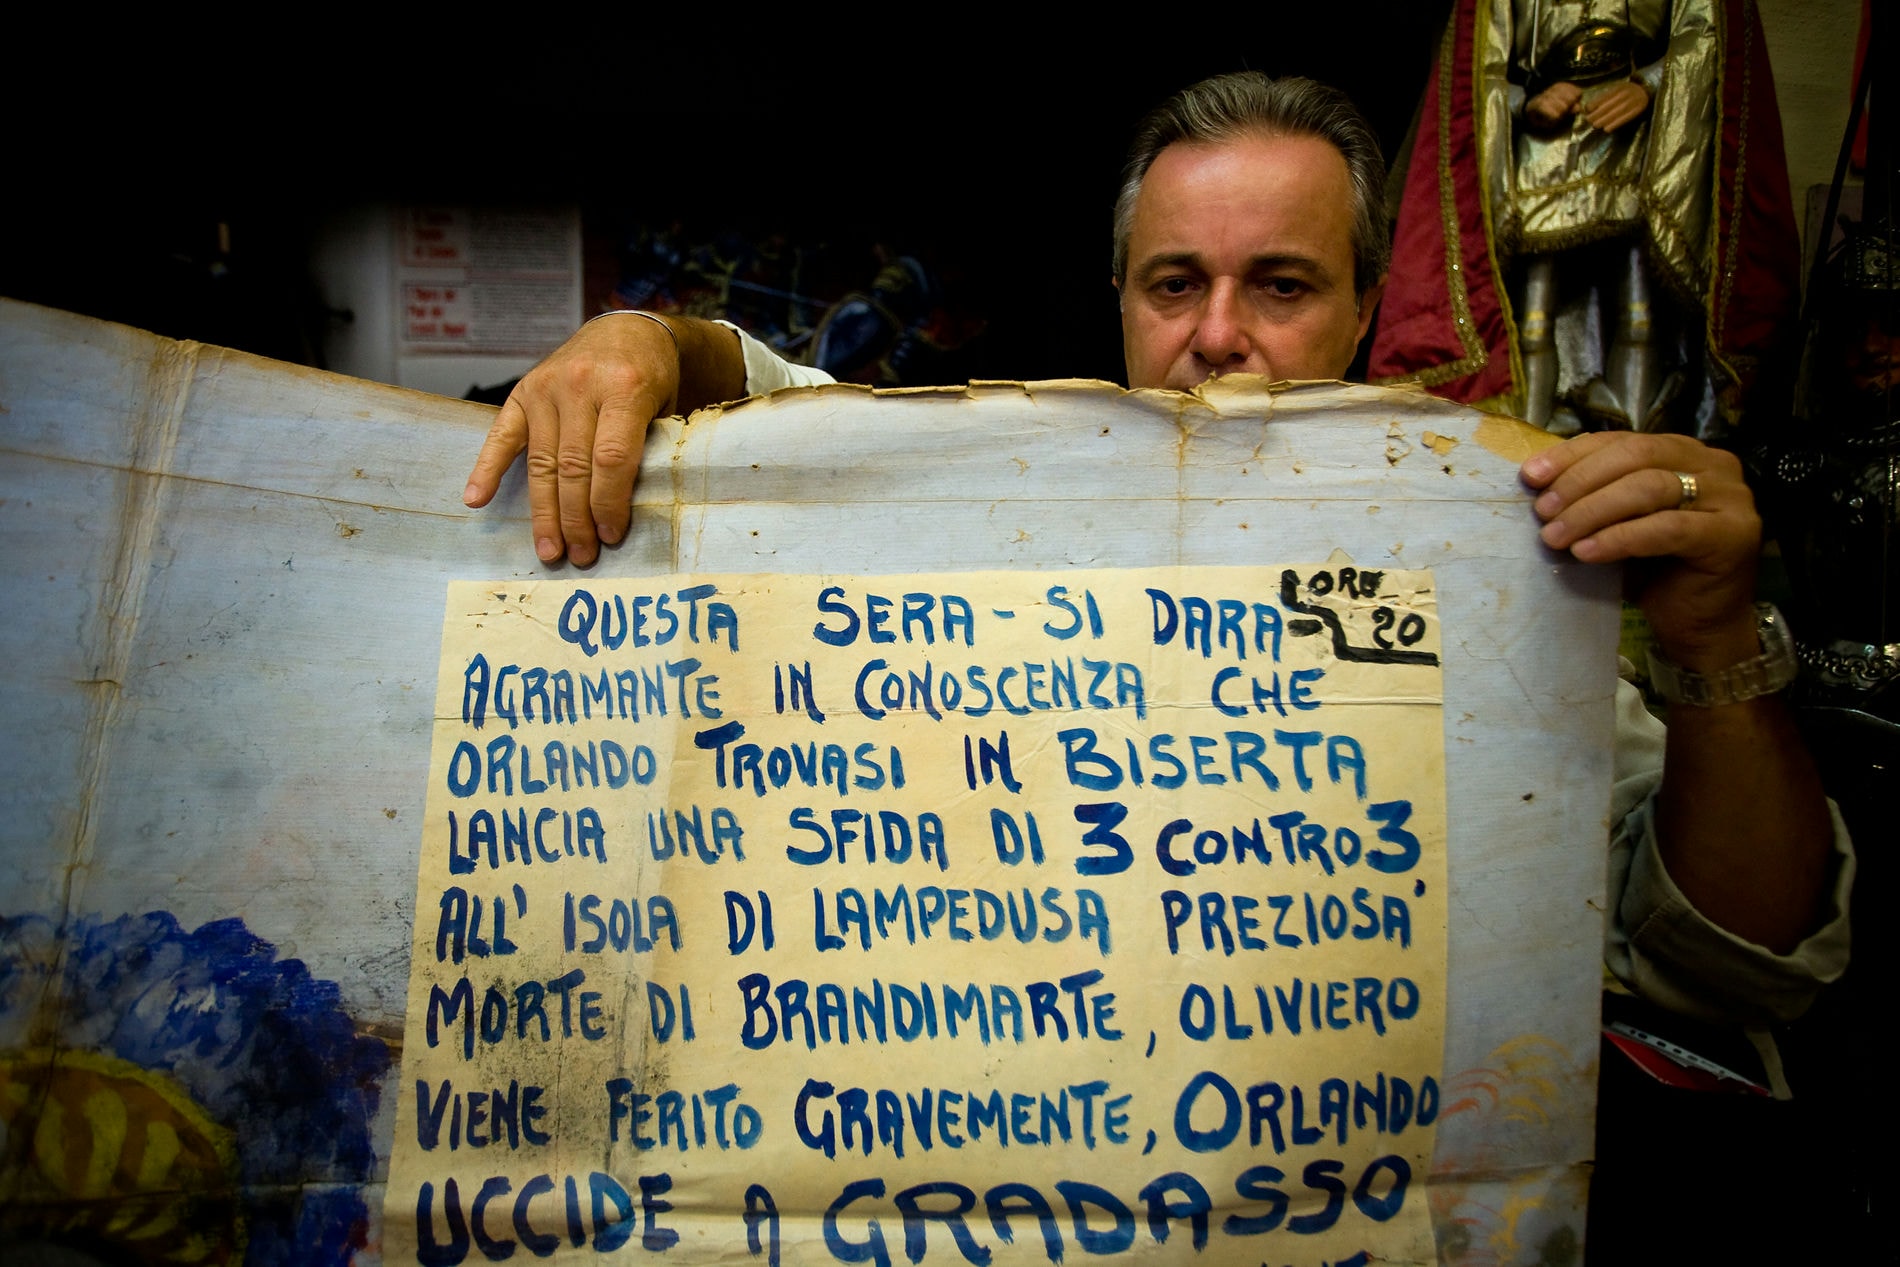 QUESTA SERA - SI DARA
ORE 20
AGRAMANTE IN CONOSCENZA CHE
ORLANDO TROVASI IN BISERTA
LANCIA UNA SFIDA DI 3 CONTRO 3,
ALL' ISOLA DI LAMPEDUSA PREZIOSA'
MORTE DI BRANDIMARTE, OLIVIERO
VIENE FERITO GRAVEMENTE, ORLANDO
UCCIDE A GRADASSO